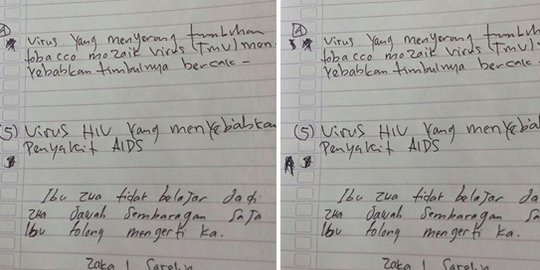 (4) Virus Yang menyerang tumbuhan
tobacco mozaik virus (TMV) men
yebabkan timbulnya bercak -
(5) Virus HIV Yang menyebabkan
Penyakit AIDS
Ibu zua tidak belajar Jadi
zua Jawab Sembarangan SaJa
Ibu tolong mengerti ka.
(4) Virus Yang menyerang tumbuhan
tobacco mozaik virus (TMV)
yebabkan timbulnya bercak -
(5) Virus HIV Yang menyebabkan
Penyakit AIDS
Ibu zua tidak belajar Jadi
zua Jawab Sembarangan SaJa
Ibu tolong mengerti ka.